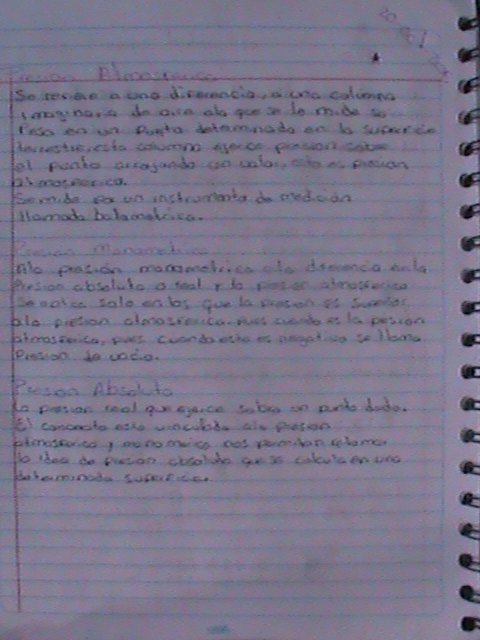 Presion Atmosferica
Se refiere a una diferencia, a una columna
imaginaria de aire ala que se le mide su
Peso en un punto determinado en la superficie
terrestre, esta columna ejerce presion sobre
el punto arrojando un valor, esto es presion
atmosferica.
Se mide por un instrumento de medición
llamado
Presion Manometrica
Ala presión manometrica a la diferencia en la
Presion absoluta o real y la presion atmosferica
Se aplica solo en los que la presion es superior
ala presion atmosferica. pues cuando es la presion
atmosferica, pues cuando esto es negativo se llama
Presion de vacio.
Presion Absoluta
La presion real que ejerce sobre un punto dado.
El concepto esta vinculado ala presion
atmosferica y nos permiten
la idea de presion absoluta que se calcula en una
determinada superficie.